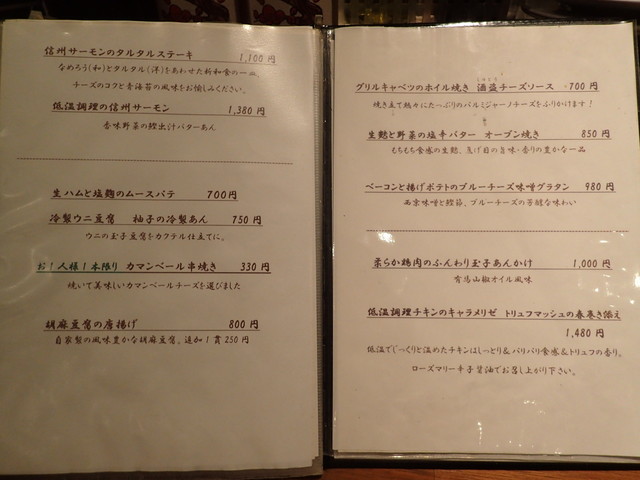 信州サーモンのタルタルステーキ 1,100 円
なめろう(和)とタルタル(洋)をあわせた新和食の一皿
チーズのコクと青海苔の風味をお愉しみください。
低温調理の信州サーモン 1,380 円
香味野菜の鰹出汁バターあん
生ハムと塩麹のムースパテ 700円
冷製ウニ豆腐 柚子の冷製あん 750 円
ウニの玉子豆腐をカクテル仕立てに。
お1人様1本限り カマンベール串焼き 330 円
焼いて美味しいカマンベールチーズを選びました
胡麻豆腐の唐揚げ 800 円
自家製の風味豊かな胡麻豆腐。追加1貫250円
グリルキャベツのホイル焼き 酒盗チーズソース 700 円
焼き立て熱々にたっぷりのパルミジャーノチーズをふりかけます!
生麩と野菜の塩辛バター オーブン焼き 850 円
もちもち食感の生麩、焦げ目の旨味・香りの豊かな一品
ベーコンと揚げポテトのブルーチーズ味噌グラタン 980 円
西京味噌と鰹節、ブルーチーズの芳醇な味わい
柔らか鶏肉のふんわり玉子あんかけ 1,000 円
有馬山椒オイル風味
低温調理チキンのキャラメリゼ トリュフマッシュの春巻き添え
1,480 円
低温でじっくりと温めたチキンはしっとり&パリパリ食感&トリュフの香り。
ローズマリー辛子醤油でお召し上がり下さい。